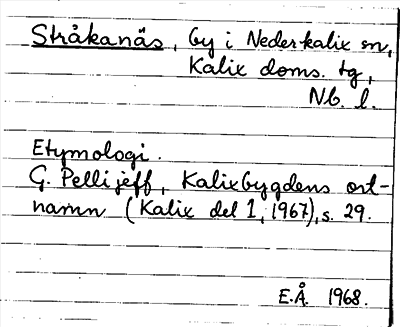 Stråkanäs, by i Nederkalix sn,
Kalix doms. tg,
Nb. l.
Etymologi.
G. Pellijeff, Kalixbygdens ort-
namn (Kalix del 1, 1967), s. 29.
E.Å. 1968.